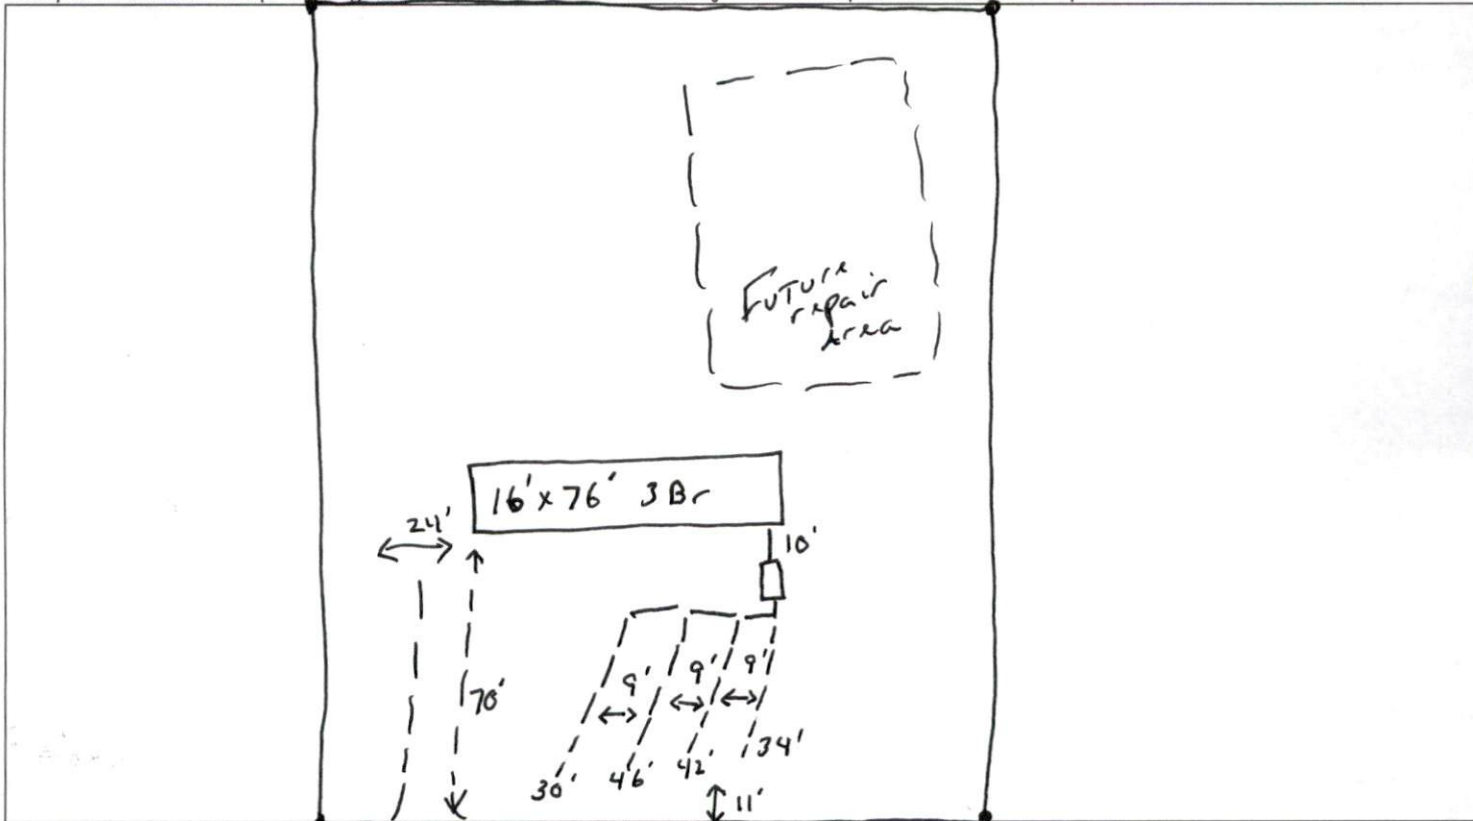 Future
repair
area
16' x 76' 3 Br
24'
10'
70'
9' 9' 9'
30' 46' 42' 34'
11'